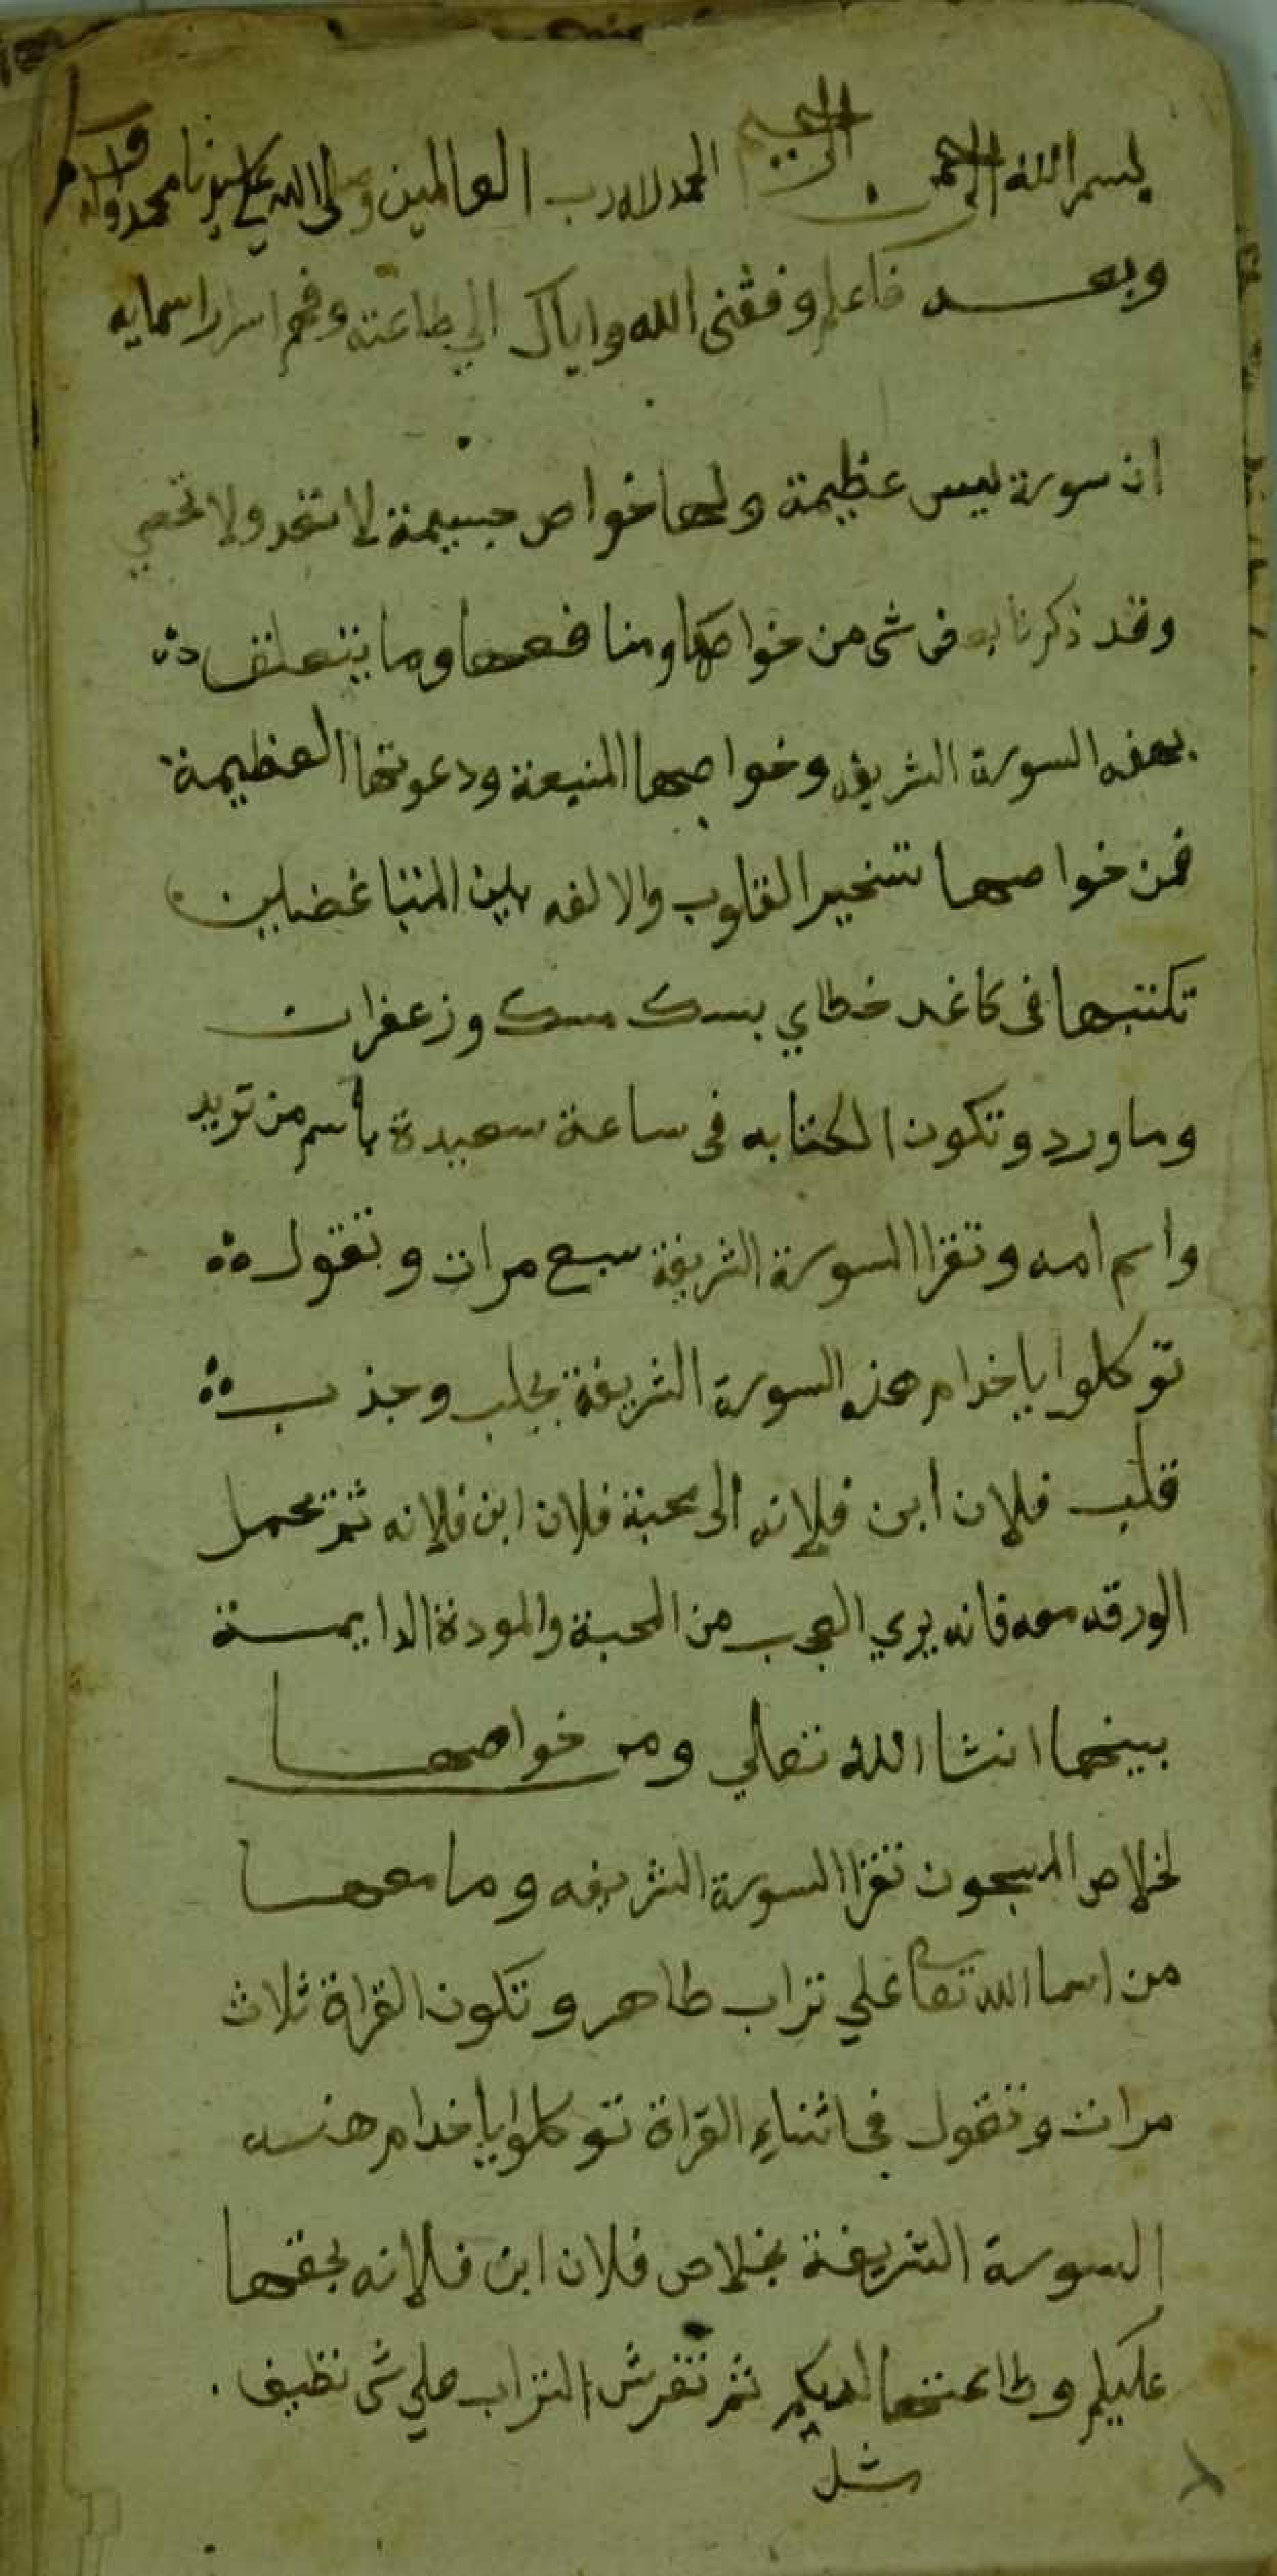 بسم الله الرحمن الرحيم الحمد لله رب العالمين وصلى الله على سيدنا محمد واله
وبعد فاعلم وفقني الله واياك الي طاعته وفهم اسرار اسمايه
ان سورة يس عظيمة ولها خواص جسيمة لا تعد ولا تحصي
وقد ذكرنا بعض شى من خواصها ومنافعها وما يتعلق
بهذه السورة الشريفه وخواصها المنيعة ودعوتها العظيمة
فمن خواصها تسخير القلوب والالفه بين المتباغضين
تكتبها فى كاغد خطاي بمسك مسك وزعفران
وماورد وتكون الكتابه فى ساعة سعيدة باسم من تريد
واسم امه وتقرا السورة الشريفة سبع مرات وتقول
توكلوا ياخدام هذه السورة الشريفة بجلب وجذب
قلب فلان ابن فلانه الى محبة فلان ابن فلانه ثم تحمل
الورقه معه فانه يري العجب من المحبة والمودة الدايمة
بينهما انشا الله تعالي ومن خواصها
لخلاص المسجون تقرا السورة الشريفه وما معها
من اسما الله تعا علي تراب طاهر وتكون القراة ثلاث
مرات وتقول فى اثناء القراة توكلوا ياخدام هذه
السورة الشريفة بخلاص فلان ابن فلانه بحقها
عليكم وطاعتها لديكم ثم تفرش التراب علي شى نظيف